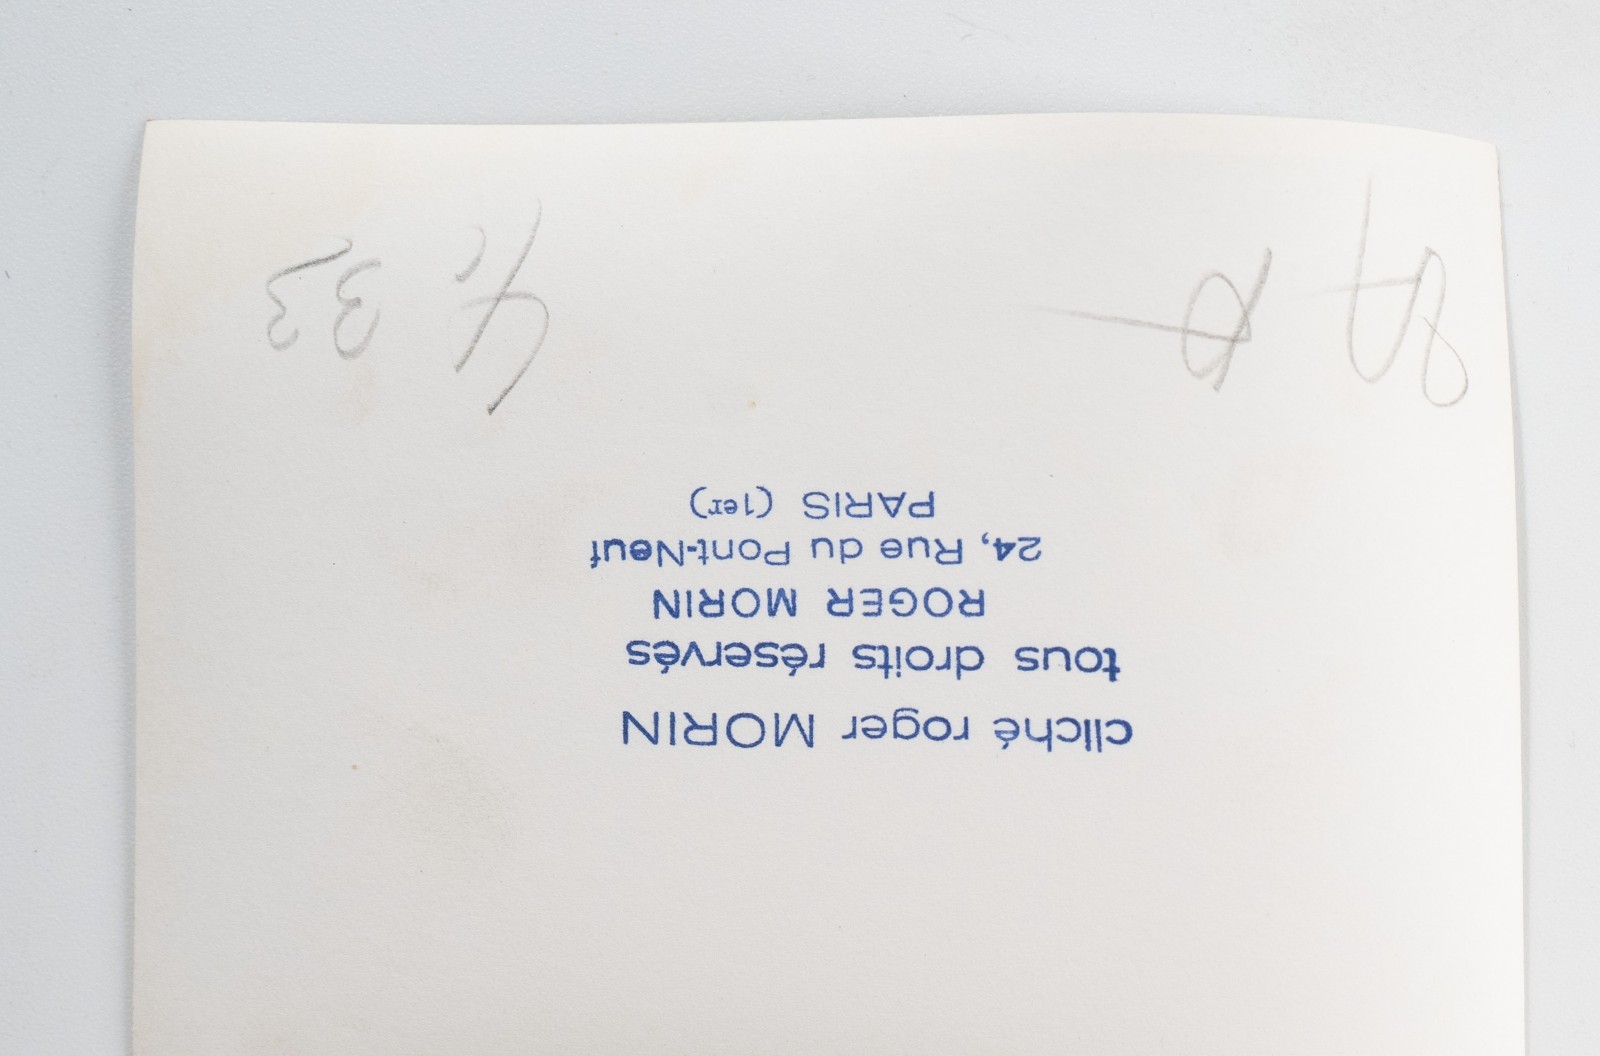 cliché roger MORIN
tous droits réservés
ROGER MORIN
24, Rue du Pont-Neuf
PARIS (1er)